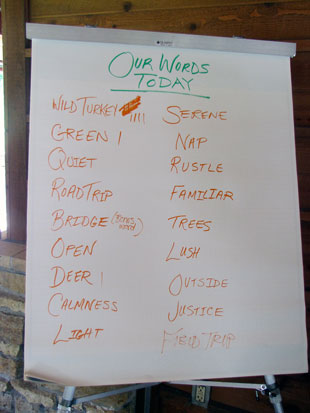 OUR WORDS
TODAY
WILD TURKEY IIII
GREEN I
QUIET
ROADTRIP
BRIDGE
OPEN
DEER I
CALMNESS
LIGHT
SERENE
NAP
RUSTLE
FAMILIAR
TREES
LUSH
OUTSIDE
JUSTICE
FIELD TRIP